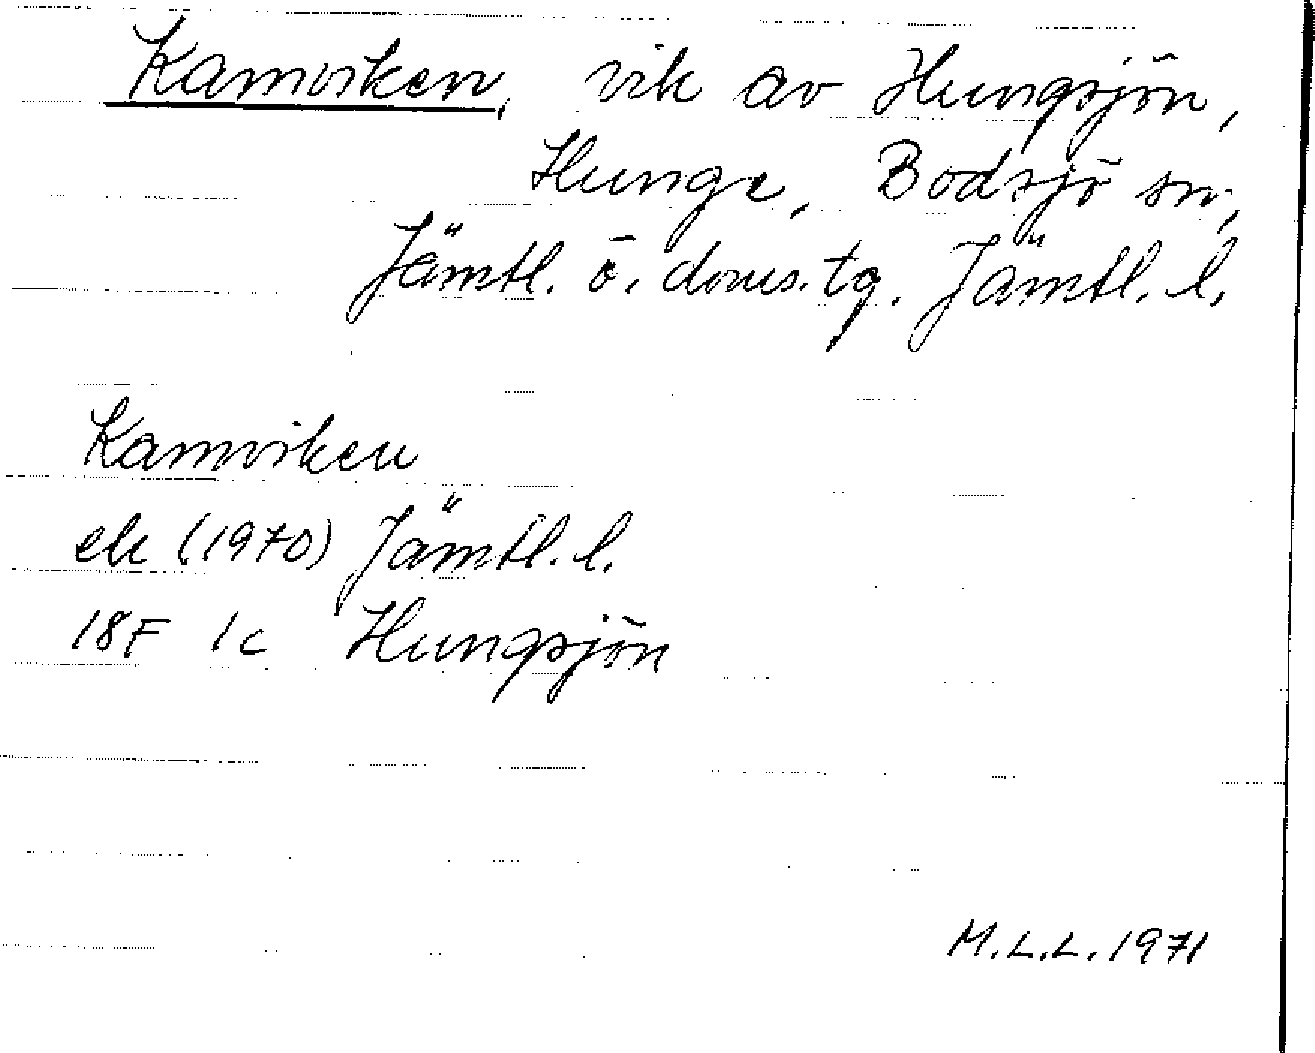 Kamviken, vik av Hungsjön,
Hunge, Bodsjö sn,
Jämtl. ö. doms. tg. Jämtl. l.
Kamviken
ek (1970) Jämtl. l.
18F 1c Hungsjön
M.L.L. 1971